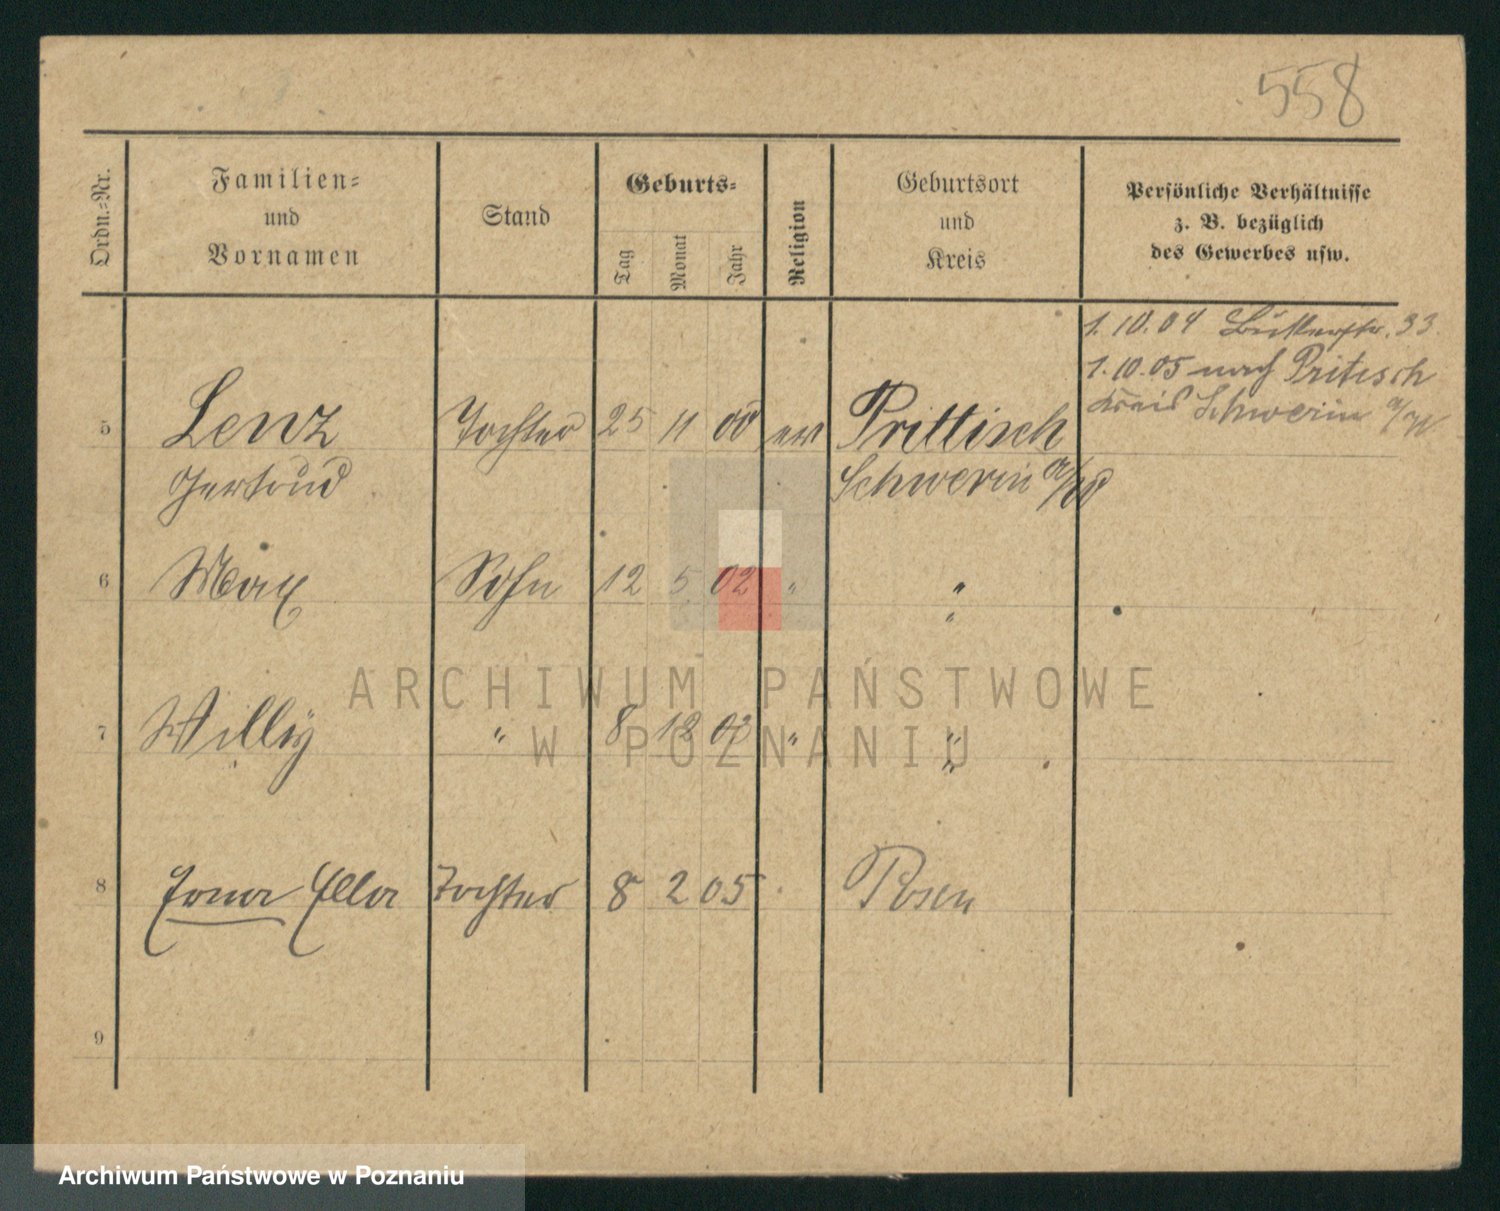 558
Ordn.-Nr.
Familien-
und
Vornamen
Stand
Geburts-
Tag
Monat
Jahr
Religion
Geburtsort
und
Kreis
Persönliche Verhältnisse
z. B. bezüglich
des Gewerbes usw.
1. 10. 04 33
1. 10. 05 nach Pritisch
Kreis Schwerin a/W
5 Lenz Tochter 25 11 00 ev Prittisch
Gertrud Schwerin a/W
6 Max Sohn 12 5 02 " "
7 Willy " 8 12 03 " "
8 Erna Ella Tochter 8 2 05 Posen
9
ARCHIWUM PAŃSTWOWE
W POZNANIU
Archiwum Państwowe w Poznaniu